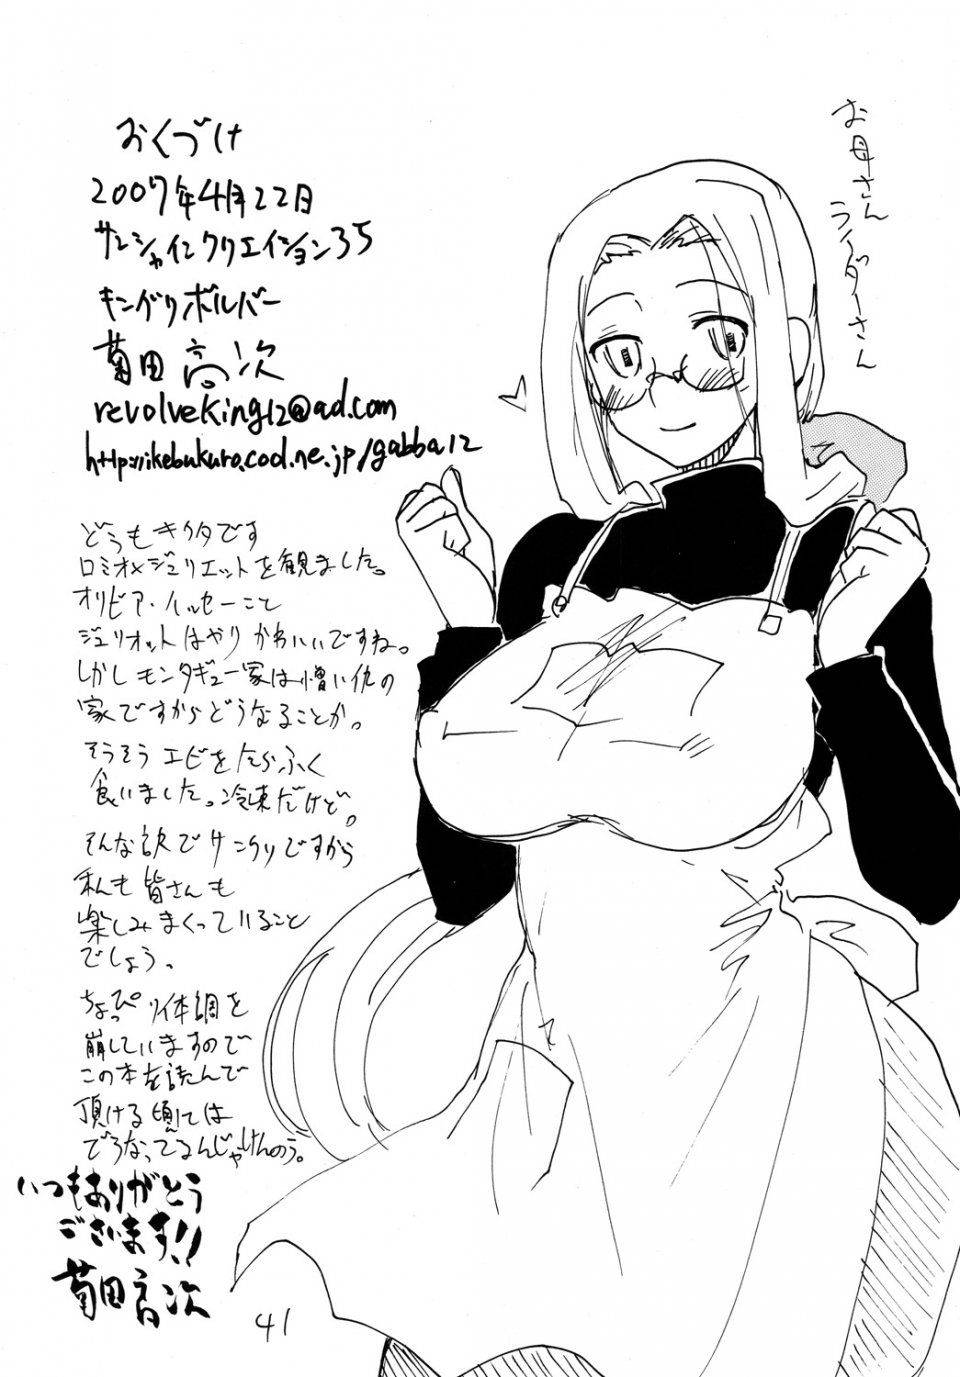 おくづけ
2007年4月22日
サンシャインクリエイション35
キングリボルバー
菊田高次
revolveking12@ad.com
http://ikebukuro.cool.ne.jp/gabba12
お母さん
ライダーさん
どうもキクタです
ロミオ×ジュリエットを観ました。
オリビア・ハッセーこと
ジュリオットはやりかわいいですね。
しかしモンタギュー家は憎い仇の
家ですからどうなることか。
そうそうエビをたらふく
食いました。冷凍だけど。
そんな訳でサンクリですから
私も皆さんも
楽しみまくっていること
でしょう。
ちょっぴり体調を
崩していますので
この本を読んで
頂ける頃には
どうなってるんじゃけんのう。
いつもありがとう
ございます!!
菊田高次
41